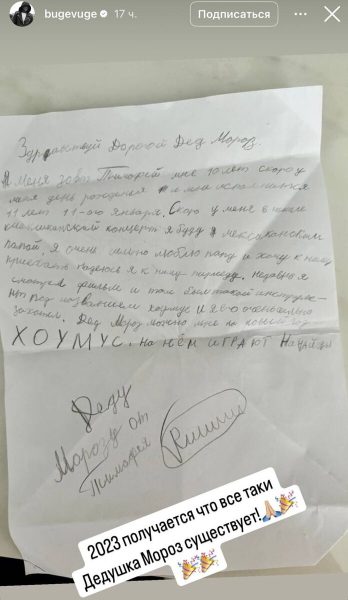 bugevuge 17 ч.
Подписаться
Здравствуй Дорогой Дед Мороз.
Меня зовт Тимофей мне 10 лет скоро у
меня день рождения и мне исполнится
11 лет 11-ого января. Скоро у меня в школе
концерт я буду мексиканским
папой. Я очень сильно люблю папу и хочу к нему
я к нему перееду. Недавно я
смотрел фильм и там был такой инструме-
нт под названием хоумус и я его
захотел. Дед Мороз можно мне на новый год
ХОУМУС. на нём играют На
Деду
Морозу от
Тимофея
2023 получается что все таки
Дедушка Мороз существует!🙏🏻🎉
🎉🎉